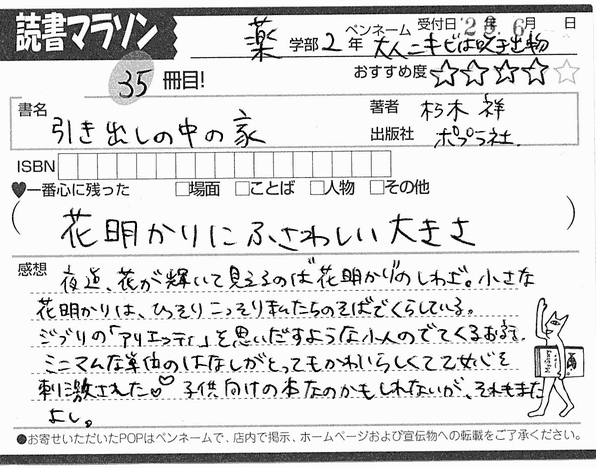 読書マラソン
薬 学部 2 年
ペンネーム 受付日 年 6月 日
大人ニキビは吹き出物
おすすめ度 ☆☆☆☆☆
35 冊目!
書名 引き出しの中の家
著者 朽木 祥
出版社 ポプラ社.
ISBN
♥一番心に残った □場面 □ことば □人物 □その他
(花明かりにふさわしい大きさ)
感想 夜道、花が輝いて見えるのは"花明かり"のしわざ。小さな
花明かりは、ひっそりこっそり私たちのそばでくらしている。
ジブリの「アリエッティ」を思いだすような小人のでてくるお話.
ミニマムな単位のはなしがとってもかわいらしくて乙女心を
刺激された。♡ 子供向けの本なのかもしれないが、それもまた
よし。
●お寄せいただいたPOPはペンネームで、店内で掲示、ホームページおよび宣伝物への転載をご了承ください。